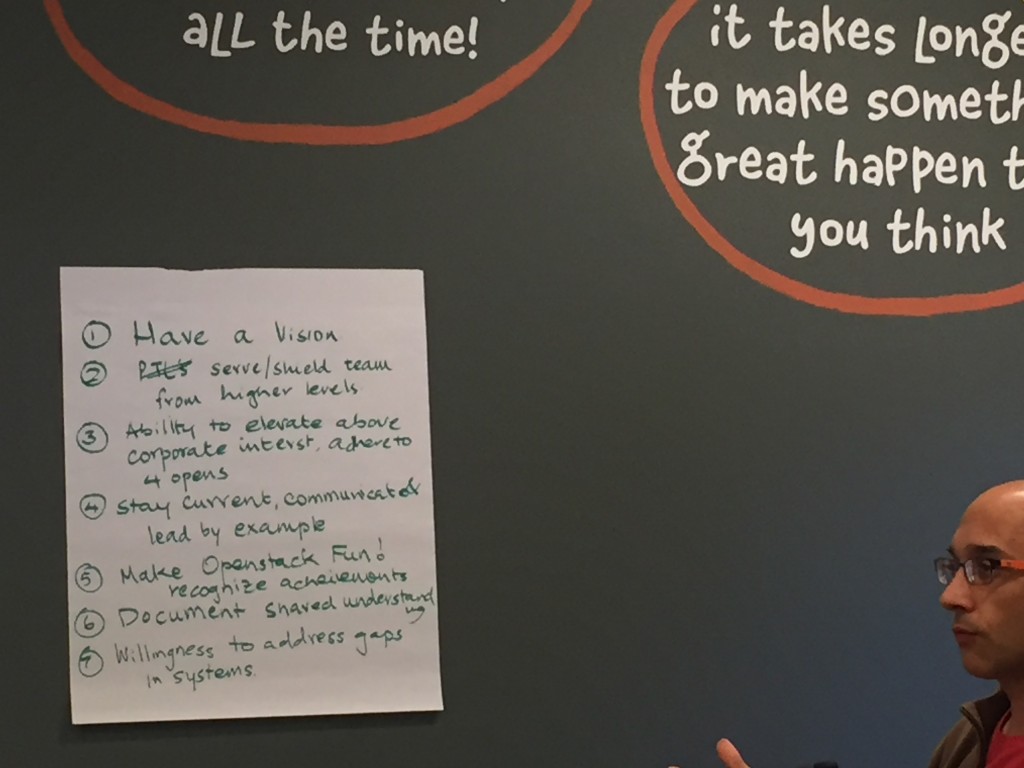 all the time!
it takes longe
to make someth
great happen t
you think
1 Have a Vision
2 PTL's serve/shield team
from higher levels
3 Ability to elevate above
corporate interst, adhere to
4 opens
4 Stay current, communicate &
lead by example
5 Make Openstack Fun!
recognize acheivements
6 Document shared understanding
7 Willingness to address gaps
in systems.